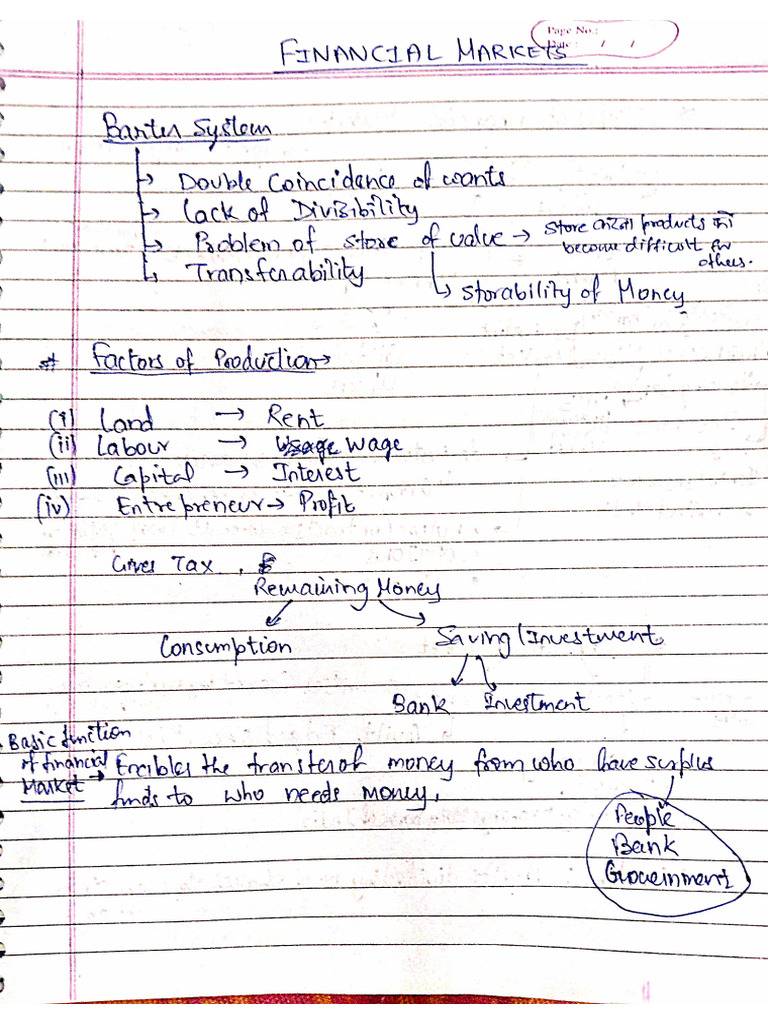 Page No.:
Date: / /
FINANCIAL MARKETS
Barter System
→ Double Coincidance of wants
→ Lack of Divisibility
→ Problem of store of value → store करना products को
become difficult for
others.
→ Transferability
↳ Storability of Money
# Factors of Production →
(i) Land → Rent
(ii) Labour → Wage
(iii) Capital → Interest
(iv) Entrepreneur → Profit
Gives Tax ,
Remaining Money
Consumption Saving/Investment
Bank Investment
Basic function
of financial
Market → Enables the transfer of money from who have surplus
funds to who needs money.
People
Bank
Government